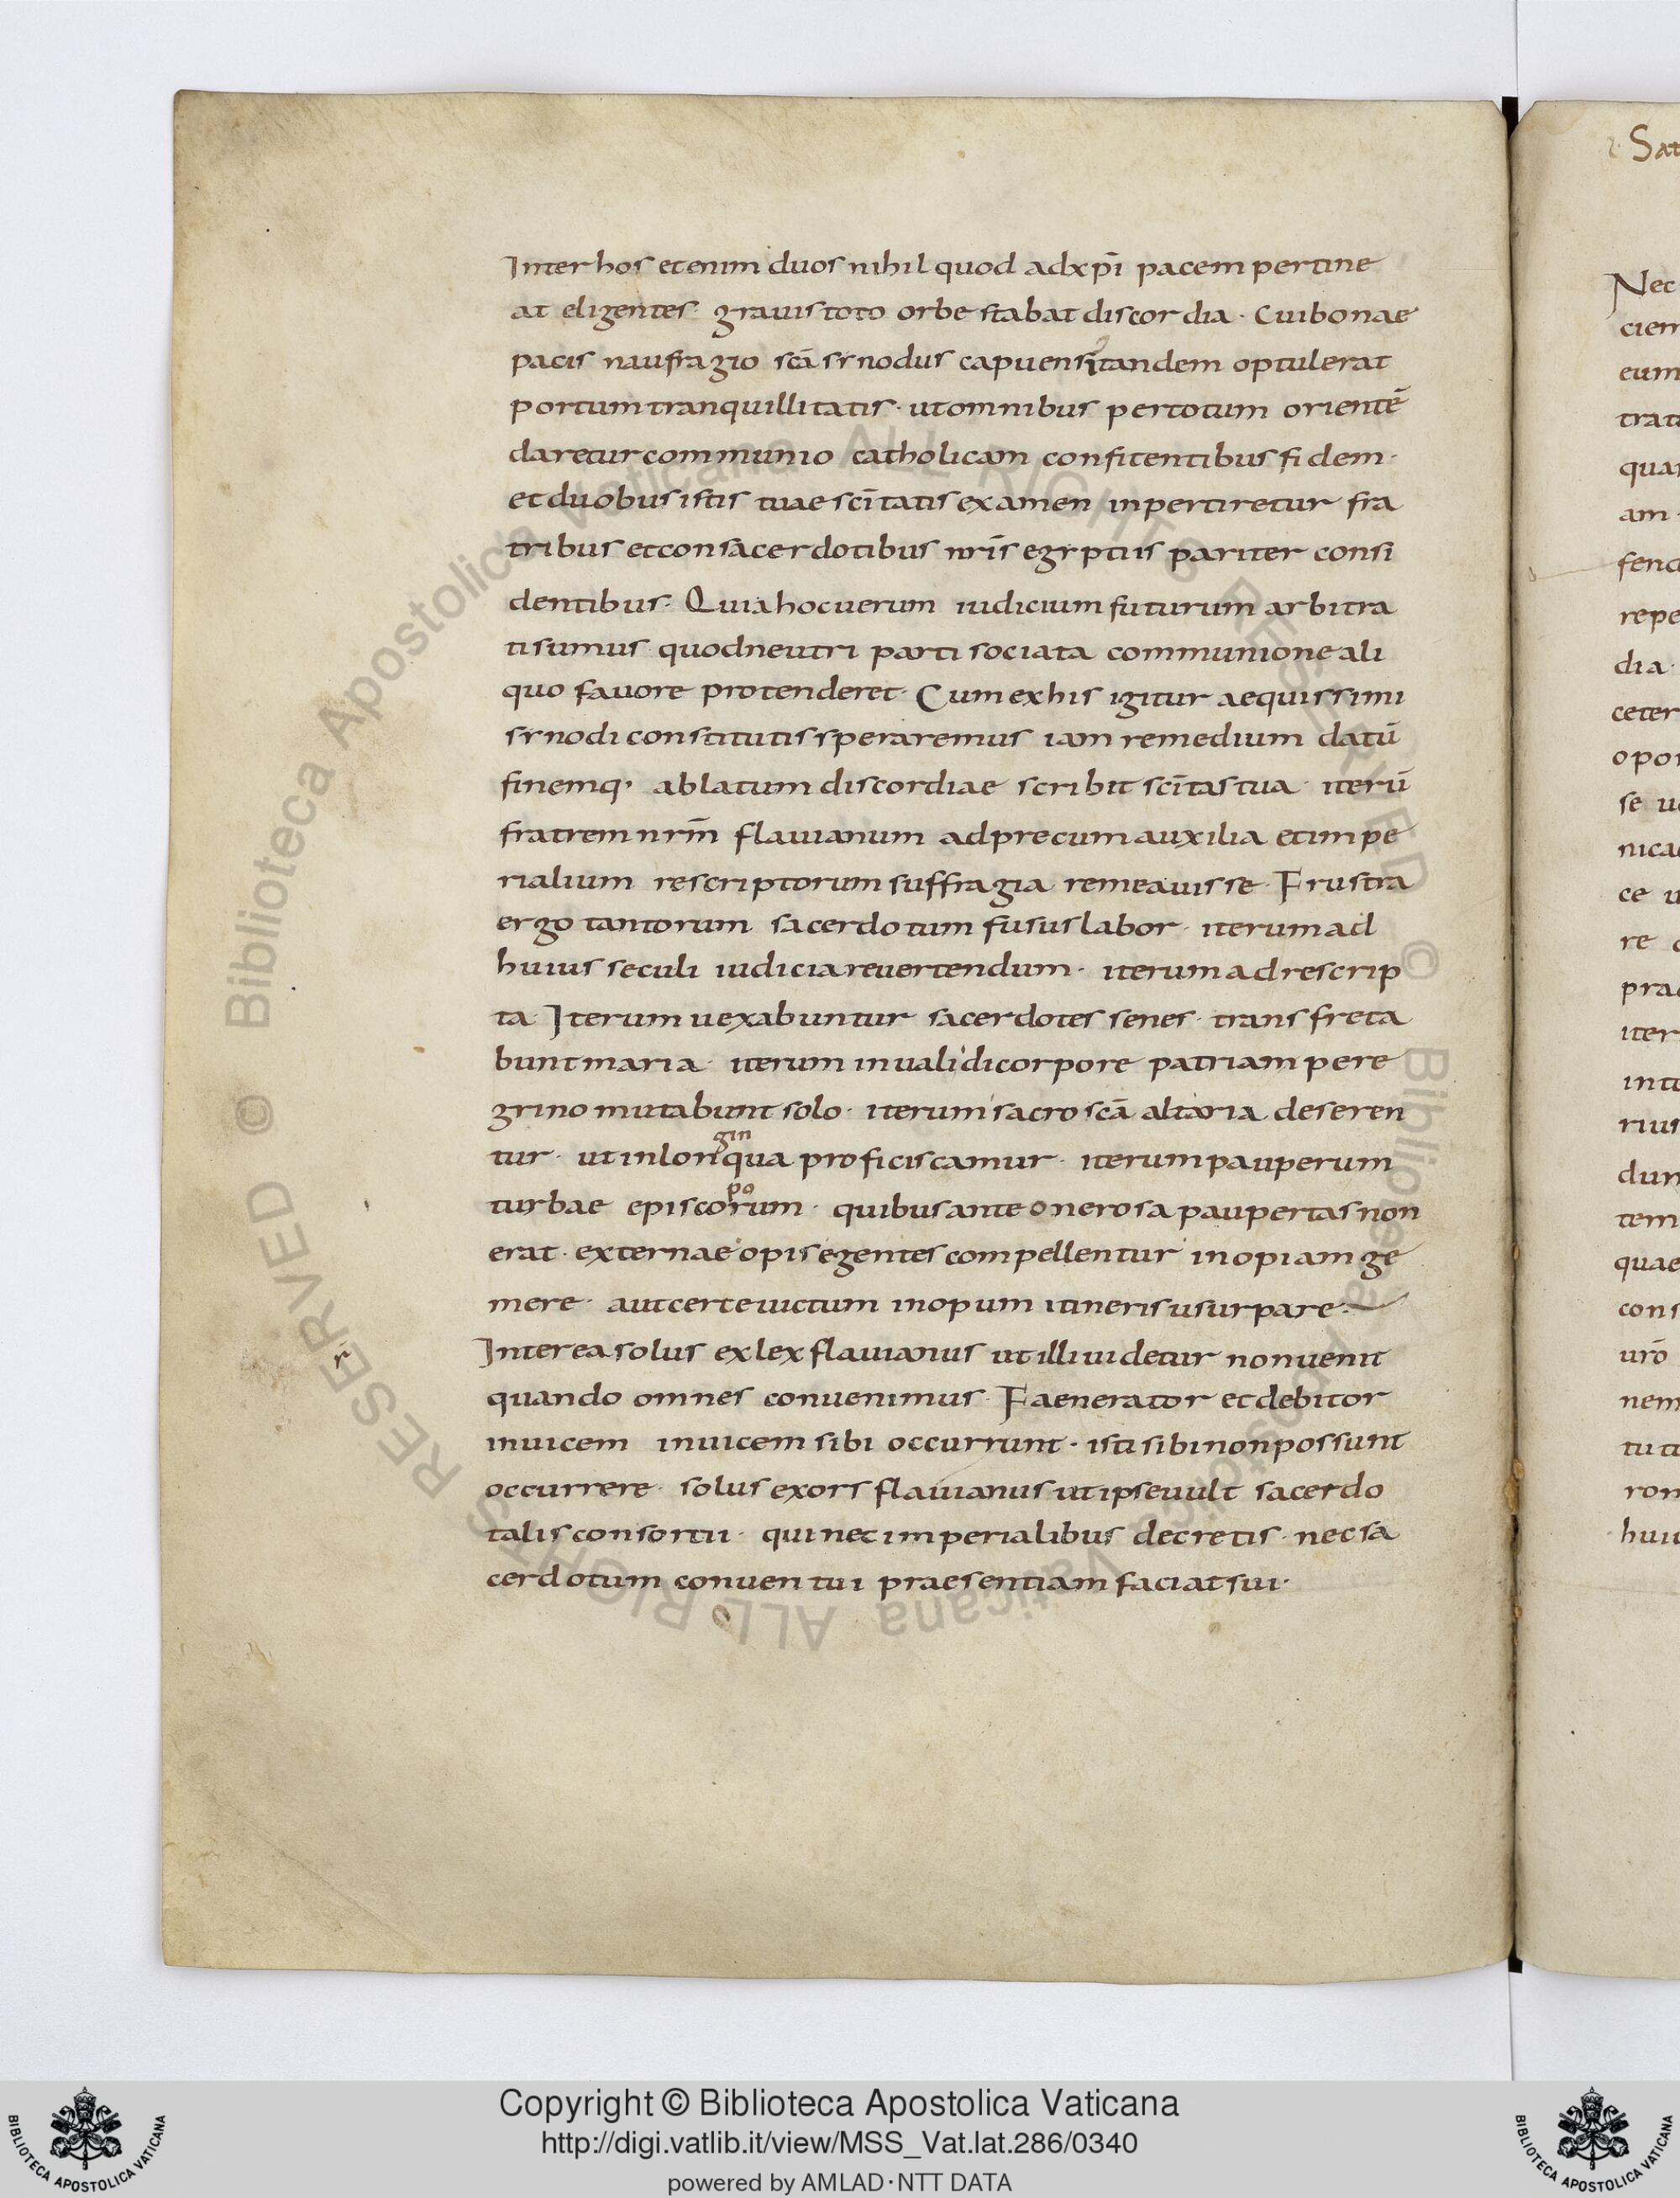 Inter hos etenim duos nihil quod ad xp̄i pacem pertine
at eligentes· grauis toto orbe stabat discordia· Cui bonae
pacis naufragio sc̄a synodus capuensi tandem optulerat
portum tranquillitatis· ut omnibus per totum orientē
daretur communio catholicam confitentibus fidem·
et duobus istis tuae sc̄itatis examen inpertiretur fra
tribus et consacerdotibus nr̄is egyptiis pariter consi
dentibus· Quia hoc uerum iudicium futurum arbitra
ti sumus quod neutri parti sociata communione ali
quo fauore protenderet· Cum ex his igitur aequissimi
synodi constitutis speraremus iam remedium datū
finemq· ablatum discordiae scribit sc̄itas tua· iterū
fratrem nr̄m flauianum ad precum auxilia et impe
rialium rescriptorum suffragia remeauisse· Frustra
ergo tantorum sacerdotum fusus labor· iterum ad
huius seculi iudicia reuertendum· iterum ad rescrip
ta· Iterum uexabuntur sacerdotes senes· transfreta
bunt maria· iterum inualidi corpore patriam pere
grino mutabunt solo· iterum sacrosc̄a altaria deseren
gin
tur· ut in lonqua proficiscamur· iterum pauperum
po
turbae episcorum· quibus ante onerosa paupertas non
erat· externae opis egentes compellentur inopiam ge
mere· aut certe uictum inopum itineris usurpare·
Interea solus exlex flauianus ut illi uidetur non uenit
r
quando omnes conuenimus· Faenerator et debitor
inuicem inuicem sibi occurrunt· isti sibi non possunt
occurrere· solus exors flauianus ut ipse uult sacerdo
talis consortii· qui nec imperialibus decretis· nec sa
cerdotum conuentui praesentiam faciat sui·
Sat
Nec
ciem
eum
trat
quar
am·
fend
repe
dia·
ceter
opor
se u
nica
ce u
re
prae
iter
inte
rius
dun
tem
quae
cons
ur̄o
nem
tu tu
ron
huiu
© Biblioteca Apostolica Vaticana ALL RIGHTS RESERVED © Biblioteca Apostolica Vaticana ALL RIGHTS RESERVED
Copyright © Biblioteca Apostolica Vaticana
http://digi.vatlib.it/view/MSS_Vat.lat.286/0340
powered by AMLAD·NTT DATA
BIBLIOTECA APOSTOLICA VATICANA
BIBLIOTECA APOSTOLICA VATICANA